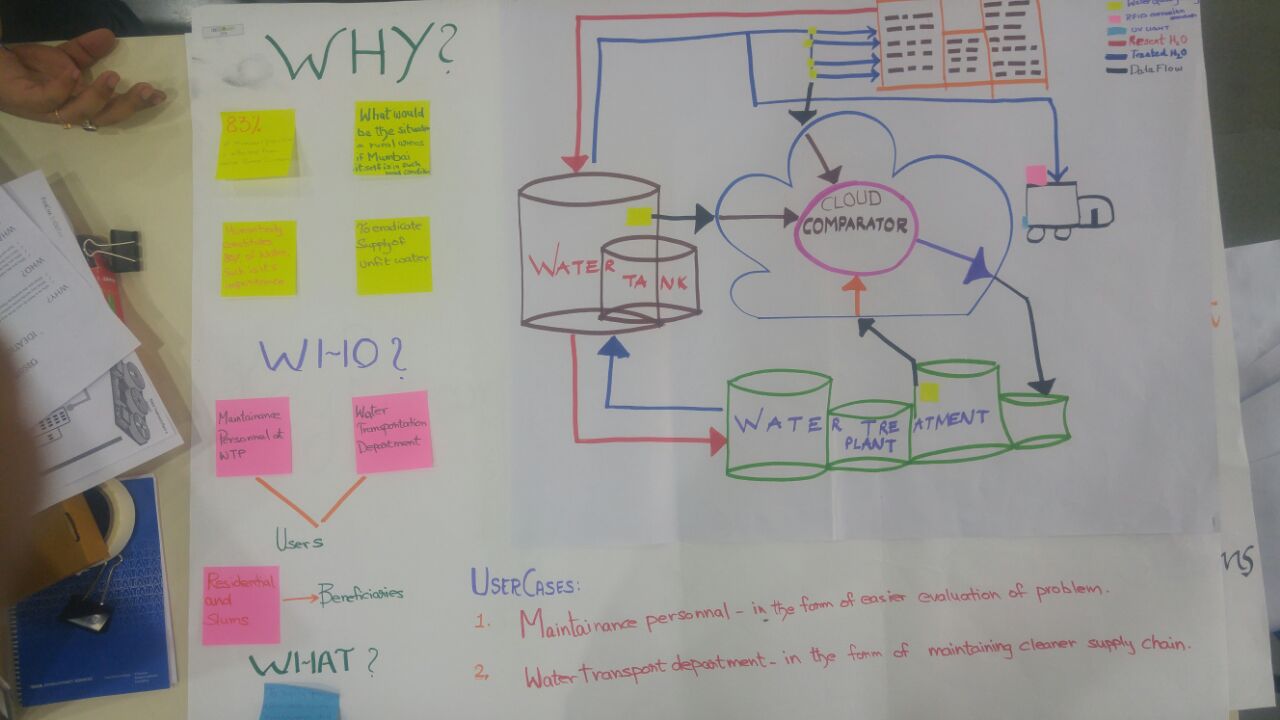 WHY?
83%
What would
be the situation
in rural areas
if Mumbai
itself is in such
Humanbody
constitutes
80% of Water,
Such is its
importance
To eradicate
Supply of
unfit water
WHO?
Maintainance
Personnel at
WTP
Water
Transportation
Department
Users
Residential
and
Slums
Beneficiaries
WHAT?
RFID
UV LIGHT
Resent H2O
Treated H2O
Data Flow
CLOUD
COMPARATOR
WATER TANK
WATER TREATMENT
PLANT
USERCASES:
1. Maintainance personnal - in the form of easier evaluation of problem.
2, Water transport department - in the form of maintaining cleaner supply chain.
WHO?
WHY?
ns